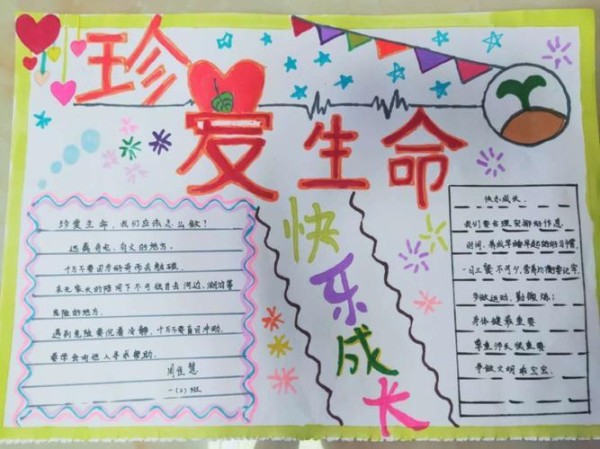 珍爱生命
快乐成长
珍爱生命,我们应该怎么做?
远离有电、有火的地方。
千万不要因为好奇而去触碰。
在无家长的陪同下不可独自去河边、湖泊等
危险的地方。
遇到危险要沉着冷静,千万不要盲目冲动,
要学会向他人寻求帮助。
周佳慧
一(2)班
快乐成长。
我们要合理安排好作息
时间,养成早睡早起的好习惯,
一日三餐不可少,营养均衡要记牢
多做运动,勤锻炼;
身体健康最重要
尊重师长很重要
争做文明乖宝宝.